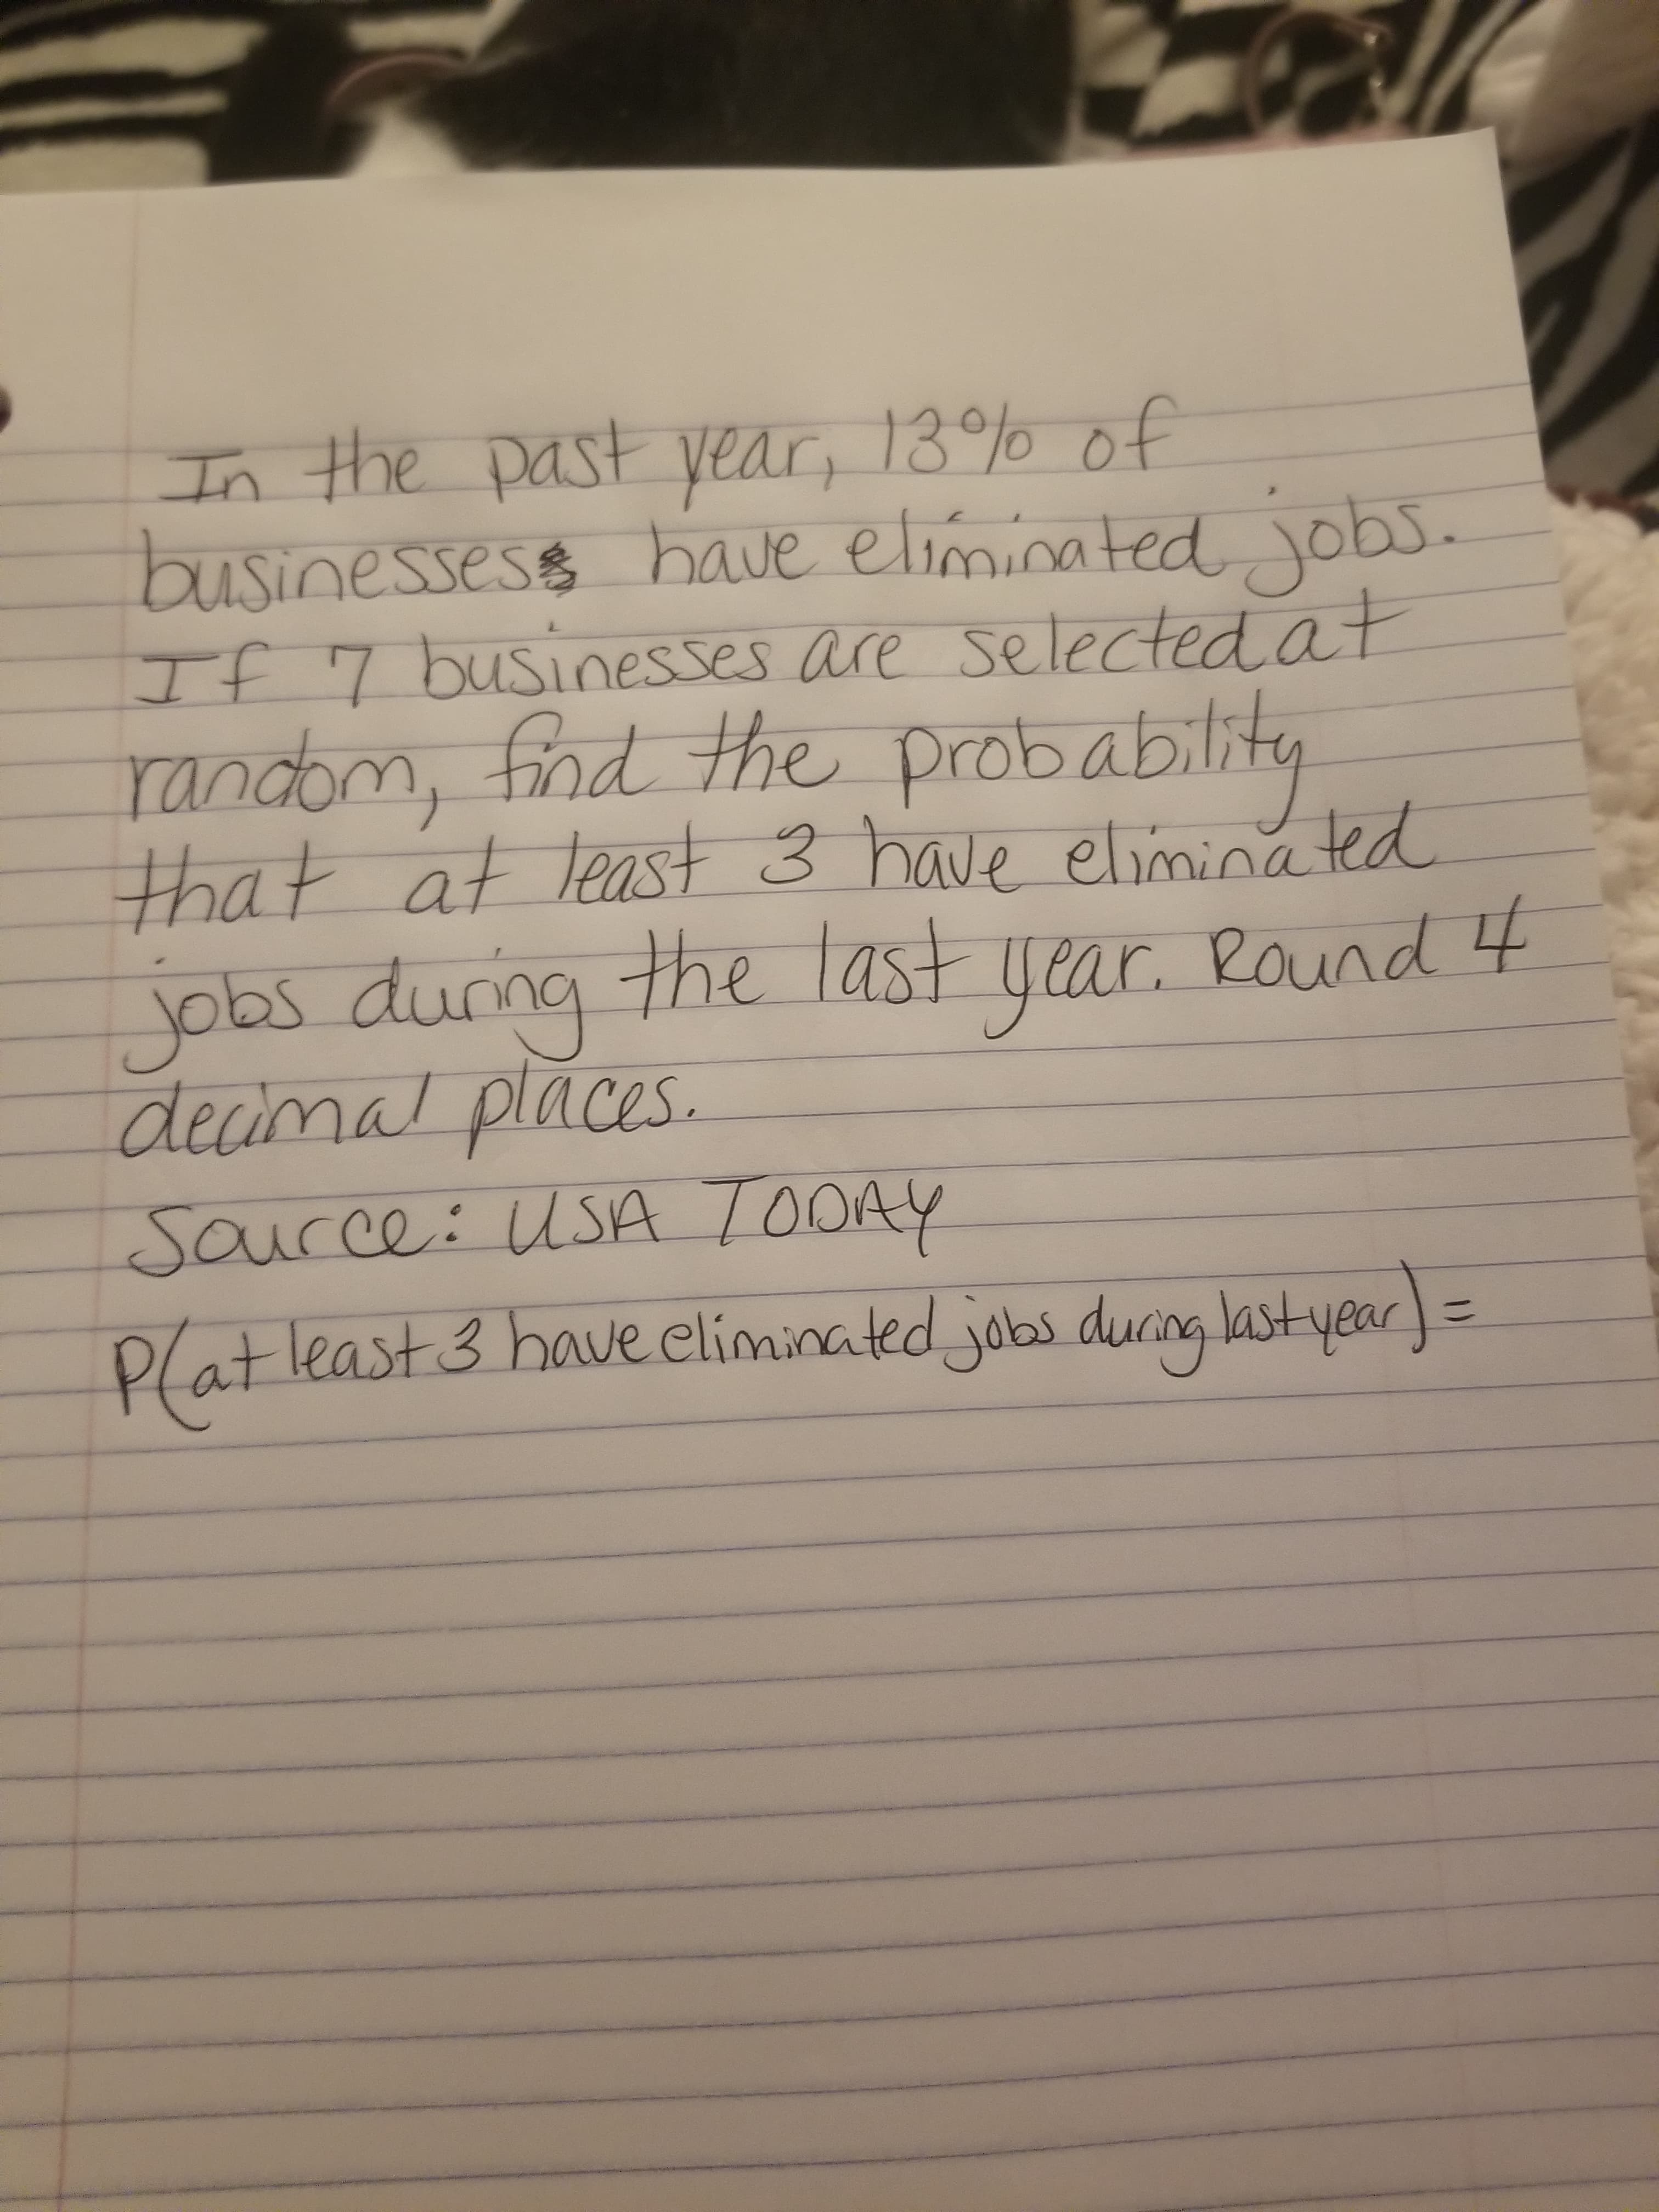 In the past year, 13% of
businesses have eliminated jobs.
If 7 businesses are selected at
random, find the probability
that at least 3 have eliminated
jobs during the last year. Round 4
decimal places.
Source: USA TODAY
P(at least 3 have eliminated jobs during last year) =